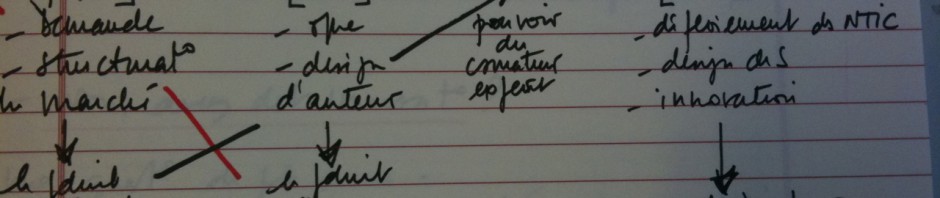 - Demande
- offre
pouvoir
- déferlement des NTIC
- structurat°
- design
du
- design des
du marché
d'auteur
expert
- innovation
le produit
le produit